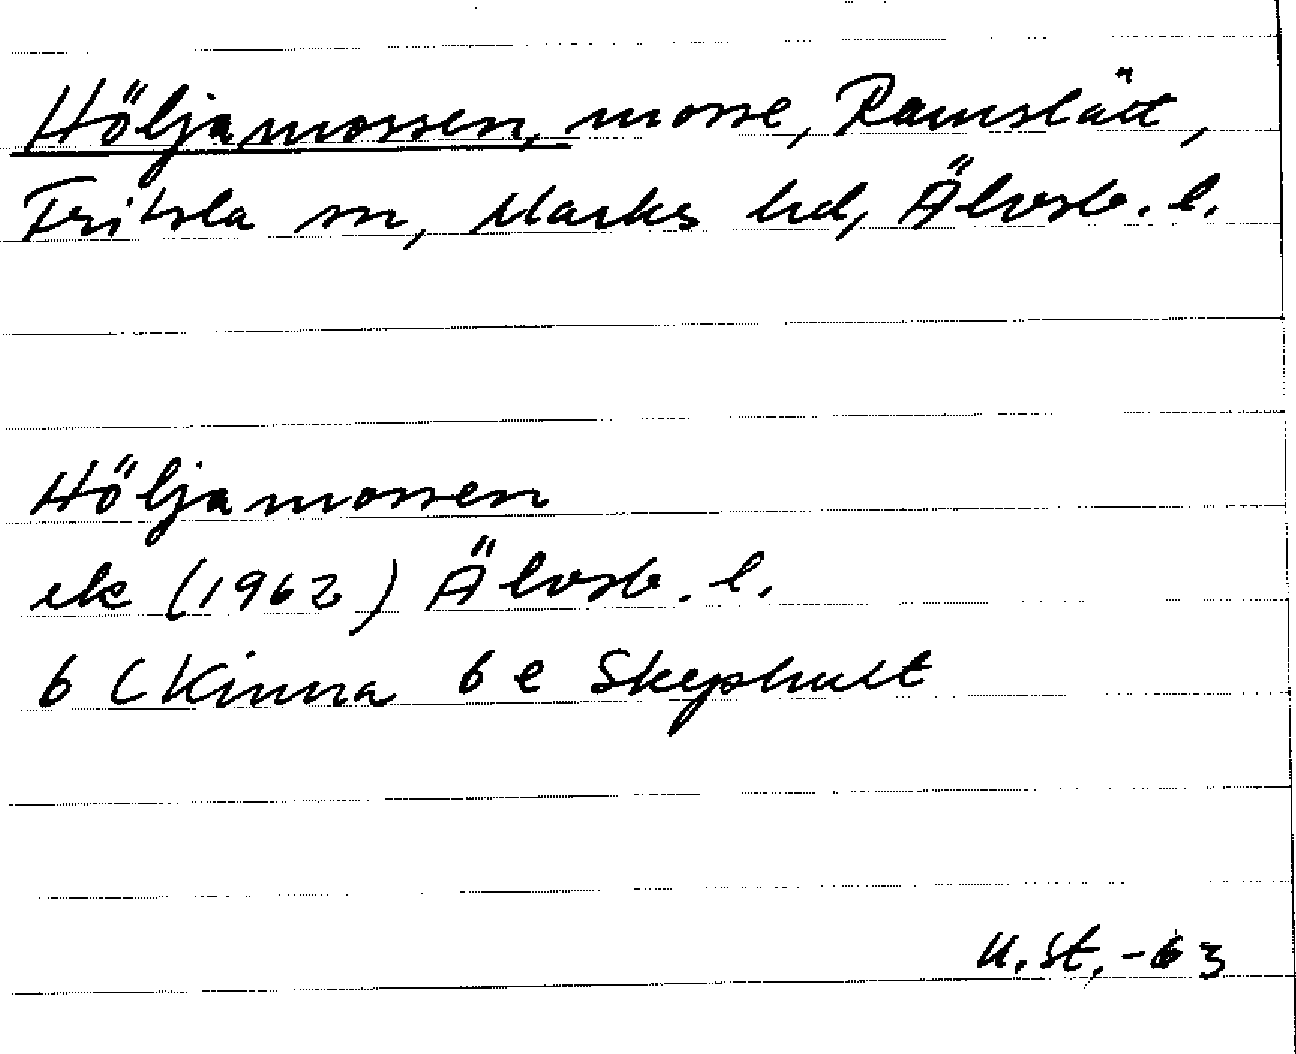 Höljamossen, mosse, Ramslätt,
Fritsla sn, Marks hd, Älvsb. l.
Höljamossen
ek (1962) Älvsb. l.
6 C Kinna 6 e Skephult
U. St. -63